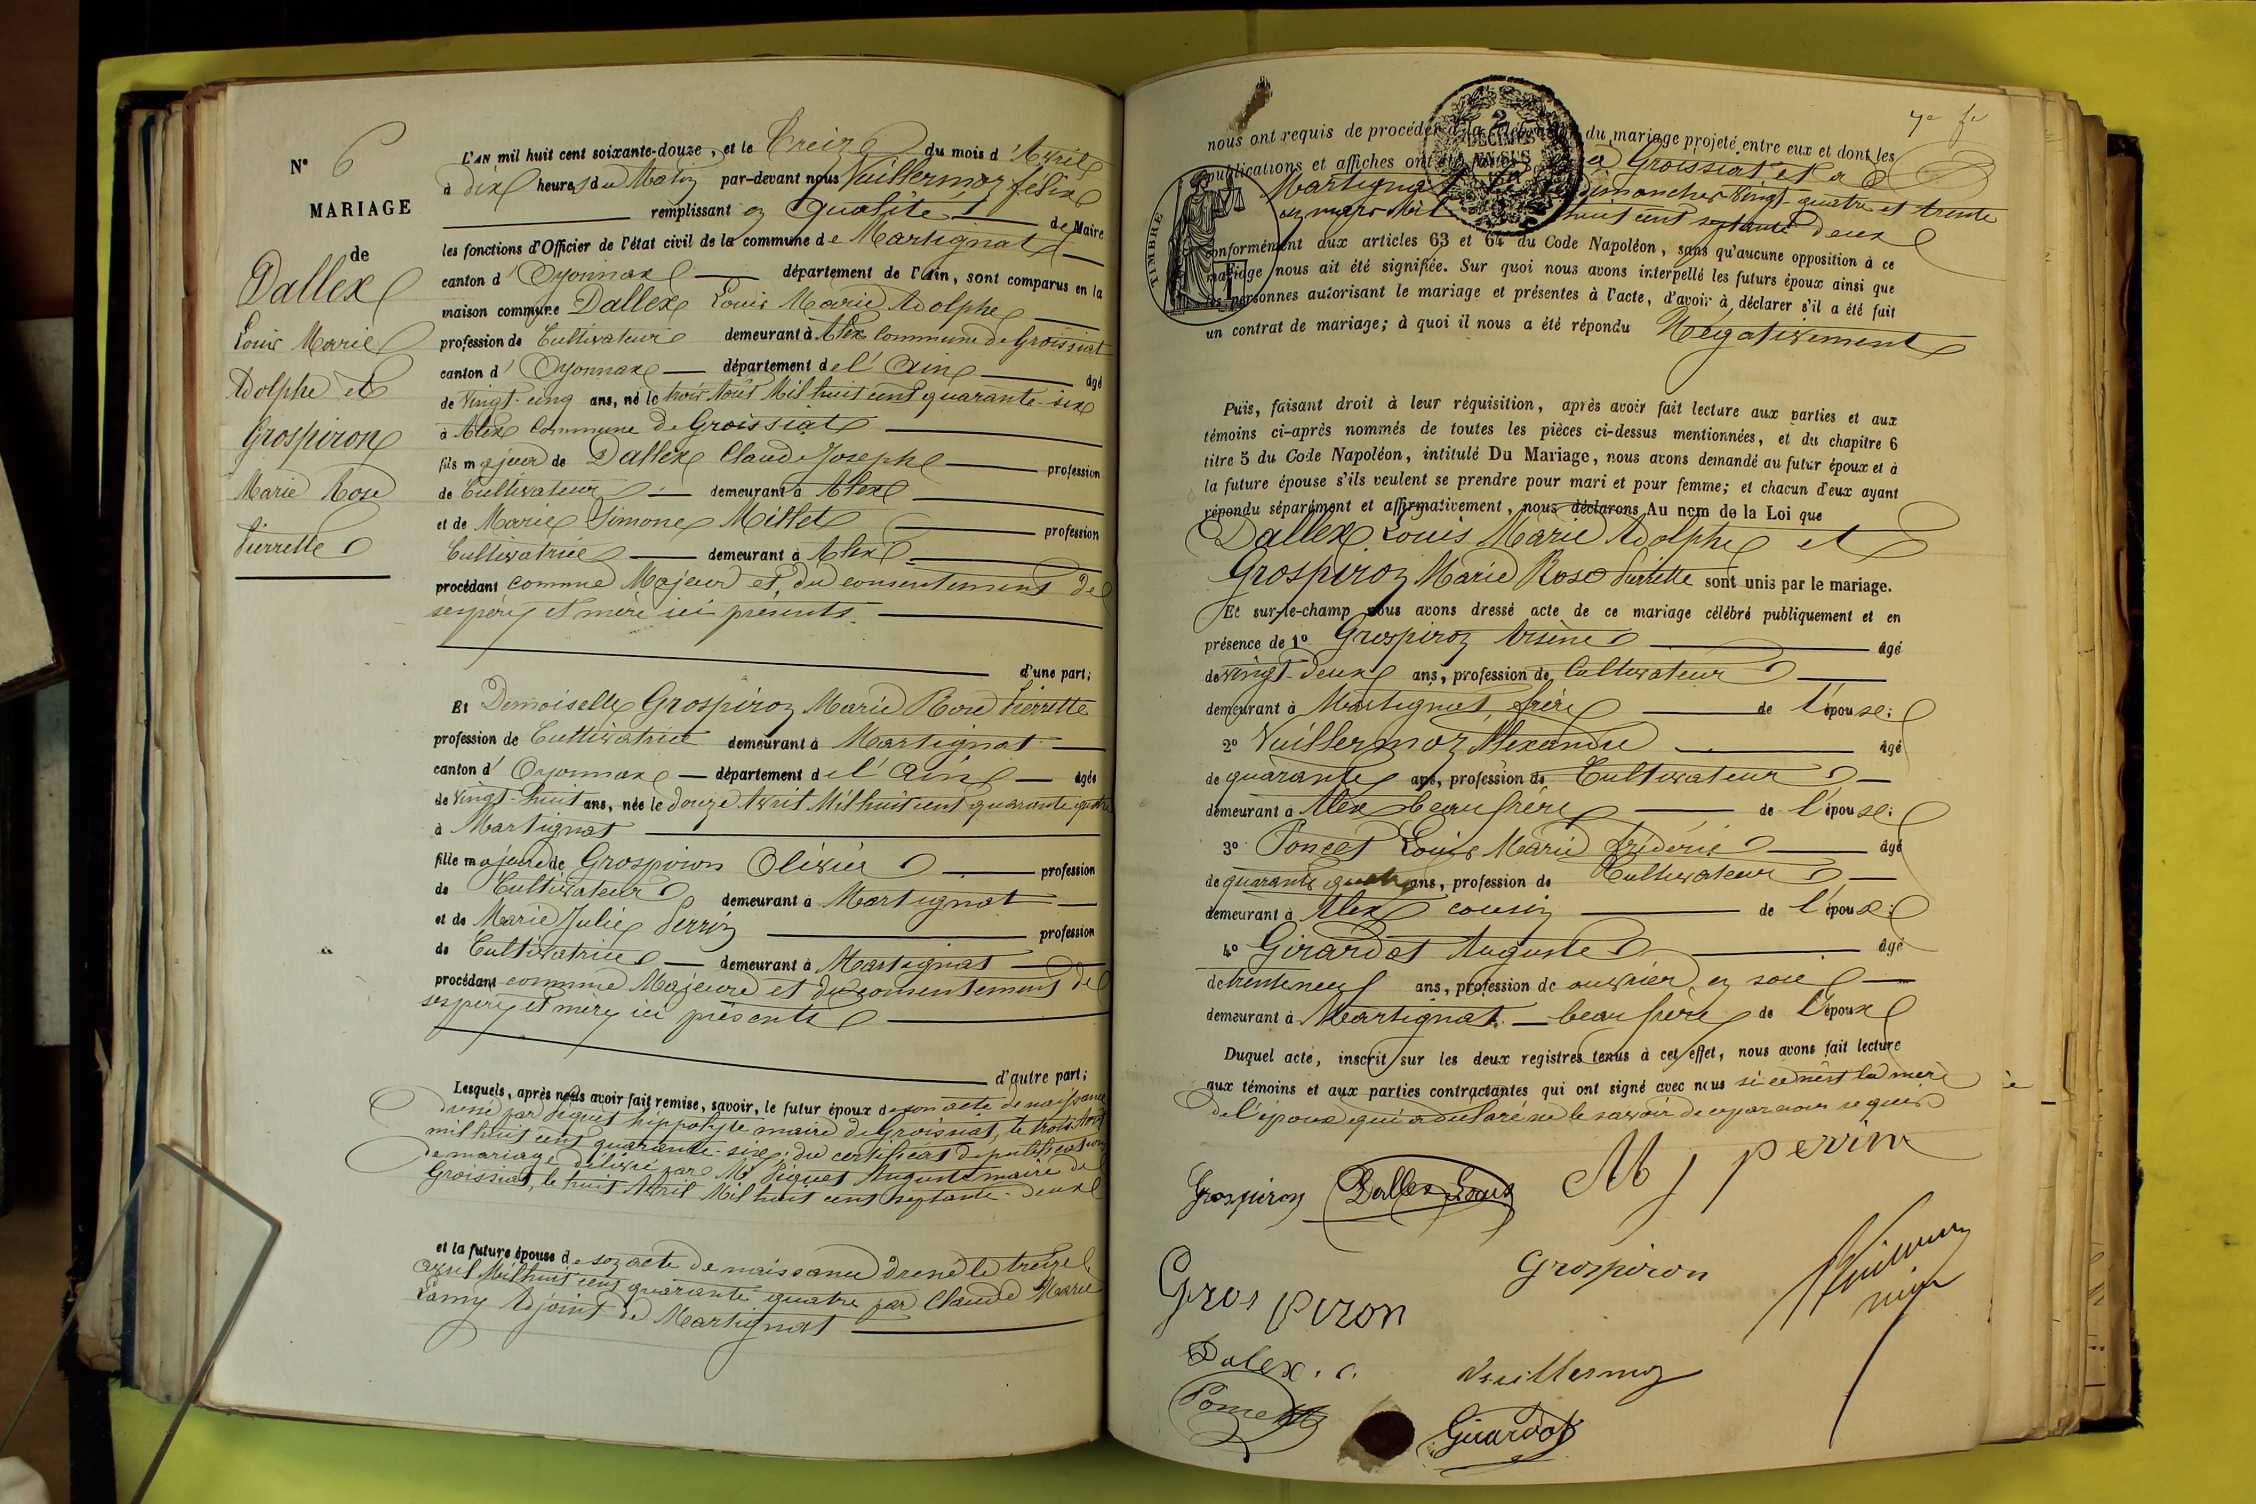 N° 6
MARIAGE
de
Dallex
Louis Marie
Adolphe et
Grospiron
Marie Rose
Pierrette
L'AN mil huit cent soixante-douze, et le Treize du mois d'Avril
à dix heures du Matin par-devant nous Vuillermoz félix
remplissant en qualité de Maire
les fonctions d'Officier de l'état civil de la commune de Martignat
canton d'Oyonnax département de l'Ain, sont comparus en la
maison commune Dallex Louis Marie Adolphe
profession de Cultivateur demeurant à Alex Commune de Groissiat
canton d'Oyonnax département de l'Ain âgé
de Vingt-cinq ans, né le trois Août Mil huit cent quarante-six
à Alex Commune De Groissiat
fils majeur de Dallex Claude Joseph profession
de Cultivateur demeurant à Alex
et de Marie Simone Millet profession
Cultivatrice demeurant à Alex
procédant comme Majeur et du consentement De
ses père et mère ici présents.
d'une part;
Et Demoiselle Grospiron Marie Rose Pierrette
profession de Cultivatrice demeurant à Martignat
canton d'Oyonnax département de l'Ain âgée
de Vingt-huit ans, née le douze Avril Mil huit cent quarante quatre
à Martignat
fille majeure de Grospiron Olivier profession
de Cultivateur demeurant à Martignat
et de Marie Julie Perrin profession
de Cultivatrice demeurant à Martignat
procédant comme Majeure et du consentement de
ses père et mère ici présents
d'autre part;
Lesquels, après nous avoir fait remise, savoir, le futur époux de son acte de naissance
dressé par Piquet hippolyte maire de Groissiat, le trois Août
mil huit cent quarante-six, du certificat de publication
de mariage délivré par Mr Piquet Auguste maire de
Groissiat, le huit Avril Mil huit cent septante-deux
et la future épouse de son acte de naissance dressé le treize
avril Mil huit cent quarante quatre par Claude Marie
Lamy Adjoint de Martignat
7e fe
nous ont requis de procéder à la célébration du mariage projeté entre eux et dont les
publications et affiches ont été à Groissiat et a
Martignat les Dimanches Vingt-quatre et trente
un mars Mil huit cent septante deux
2
DÉCIMES
EN SUS
TIMBRE
conformément aux articles 63 et 64 du Code Napoléon, sans qu'aucune opposition à ce
mariage nous ait été signifiée. Sur quoi nous avons interpellé les futurs époux ainsi que
les personnes autorisant le mariage et présentes à l'acte, d'avoir à déclarer s'il a été fait
un contrat de mariage; à quoi il nous a été répondu Négativement
Puis, faisant droit à leur réquisition, après avoir fait lecture aux parties et aux
témoins ci-après nommés de toutes les pièces ci-dessus mentionnées, et du chapitre 6
titre 5 du Code Napoléon, intitulé Du Mariage, nous avons demandé au futur époux et à
la future épouse s'ils veulent se prendre pour mari et pour femme; et chacun d'eux ayant
répondu séparément et affirmativement, nous déclarons Au nom de la Loi que
Dallex Louis Marie Adolphe et
Grospiron Marie Rose Pierrette sont unis par le mariage.
Et sur-le-champ nous avons dressé acte de ce mariage célébré publiquement et en
présence de 1° Grospiron Arsène âgé
de vingt-deux ans, profession de Cultivateur
demeurant à Martignat, frère de l'épouse;
2° Vuillermoz Alexandre âgé
de quarante ans, profession de Cultivateur
demeurant à Alex beau frère de l'épouse;
3° Poncet Louis Marie frédéric âgé
de quarante quatre ans, profession de Cultivateur
demeurant à Alex cousin de l'époux;
4° Girardot Auguste âgé
de trente neuf ans, profession de ouvrier en soie
demeurant à Martignat beau frère de l'époux
Duquel acte, inscrit sur les deux registres tenus à cet effet, nous avons fait lecture
aux témoins et aux parties contractantes qui ont signé avec nous si ce n'est la mère
de l'époux qui a déclaré ne le savoir de ce par nous requis
Grospiron Dallex Louis M j perrin
Gros piron Grospiron
Dalex. c. Vuillermoz
Poncet Girardot